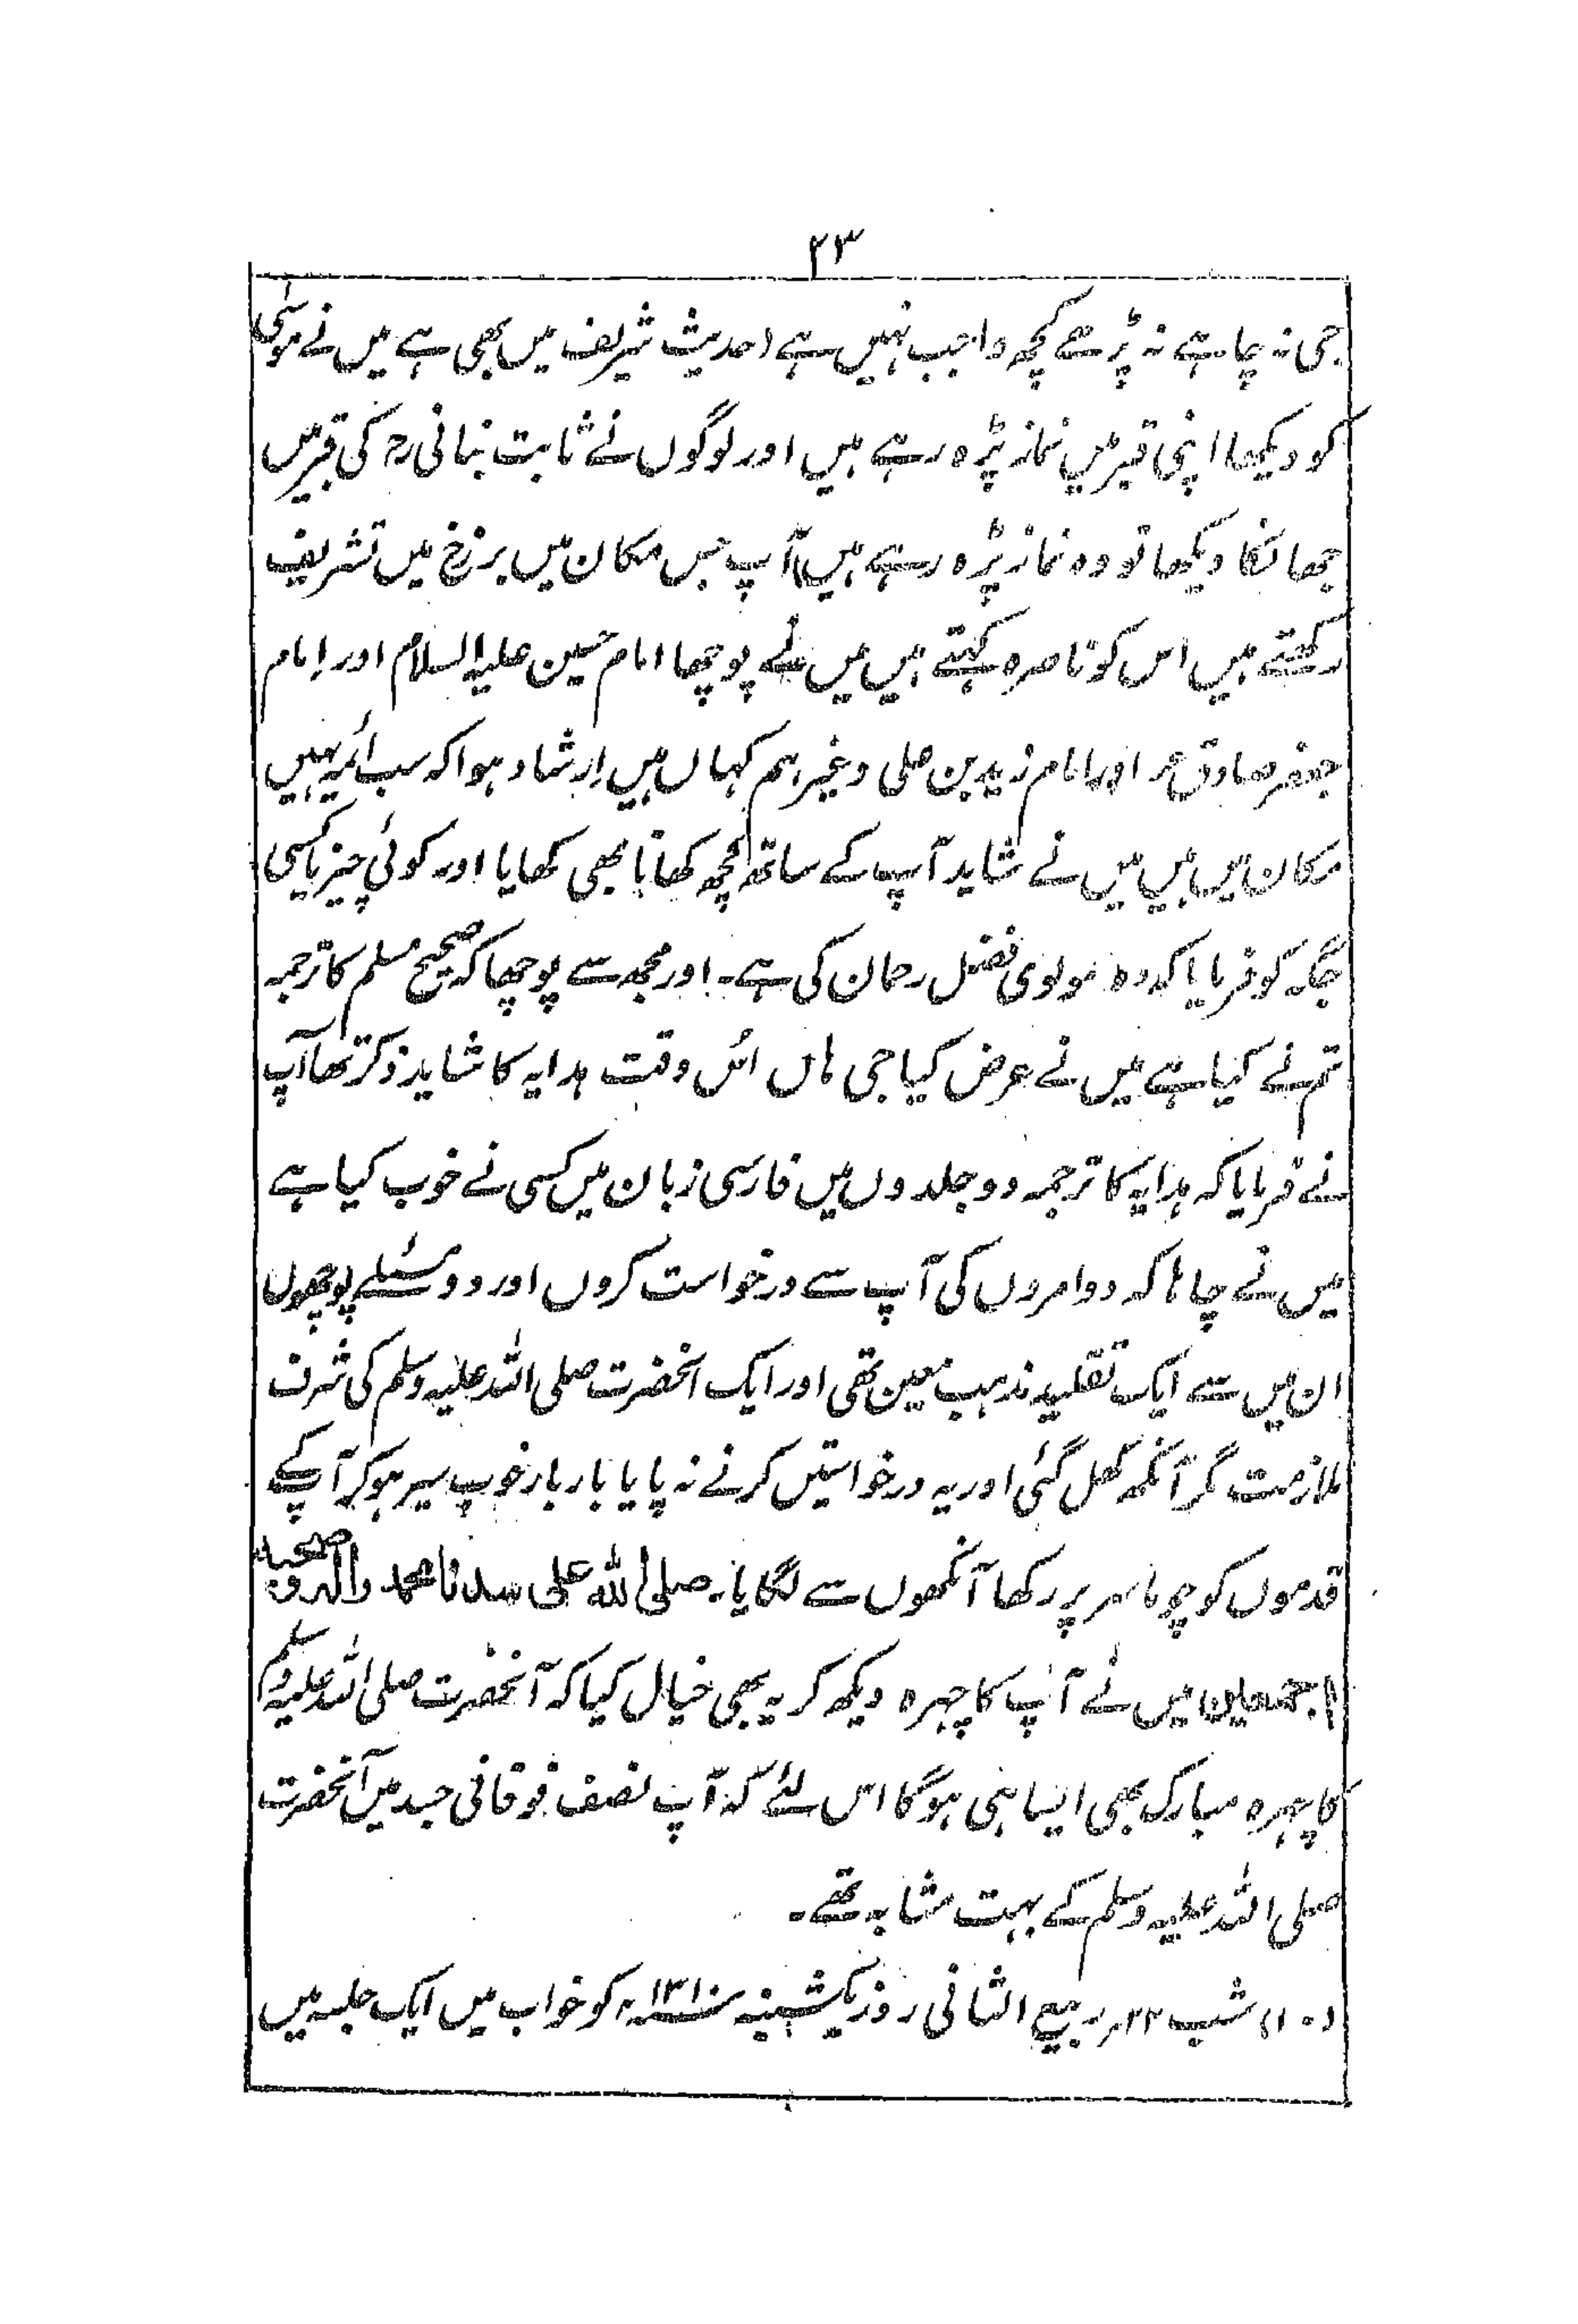 ۲۳
جی نہ چاہے نہ پڑھے کچھ واجب نہیں ہے (حدیث شریف میں بھی ہے میں نے موسٰی
کو دیکھا اپنی قبر میں نماز پڑہ رہے ہیں اور لوگوں نے ثابت بنانی رح کی قبر میں
جھانکا دیکھا تو وہ نماز پڑہ رہے ہیں) آپ جس مکان میں برزخ میں تشریف
رکھتے ہیں اس کو ناصرہ کہتے ہیں میں نے پوچھا امام حسین علیہ السلام اور امام
جعفر صادق عہ اور امام زید بن علی وغیرہم کہاں ہیں اِرشاد ہوا کہ سب ائمہ یہیں
مکان میں ہیں میں نے شاید آپ کے ساتھ کچھ کھانا بھی کھایا اور کوئی چیز یا کسی
جگہ کو فرمایا کہ وہ مولوی فضل رحمان کی ہے۔ اور مجھ سے پوچھا کہ صحیح مسلم کا ترجمہ
تم نے کیا ہے میں نے عرض کیا جی ہاں اُس وقت ہدایہ کا شاید ذکر تھا آپ
نے فرمایا کہ ہدایہ کا ترجمہ دو جلدوں میں فارسی زبان میں کسی نے خوب کیا ہے
میں نے چاہا کہ دو امروں کی آپ سے درخواست کروں اور دو مسئلے پوچھوں
ان میں سے ایک تقلید مذہب معین تھی اور ایک انحضرت صلی اللہ علیہ وسلم کی شرف
ملازمت مگر آنکھ کھل گئی اور یہ درخواستیں کرنے نہ پایا بار بار خوب سیر ہوکر آپکے
قدموں کو چوما سر پر رکھا آنکھوں سے لگایا۔ صلی اللہ علی سیدنا محمد والہ وصحبہ
اجمعین میں نے آپ کا چہرہ دیکھ کر یہ بھی خیال کیا کہ آنحضرت صلی اللہ علیہ وسلم
کا چہرہ مبارک بھی ایسا ہی ہوگا اس لئے کہ آپ نصف فوقانی جسد میں آنحضرت
صلی اللہ علیہ وسلم کے بہت مشابہ تھے۔
(۱۰) شب ۲۲ ربیع الثانی روز یکشنبہ سنہ ۱۳۱۰ ہ کو خواب میں ایک جلسہ میں